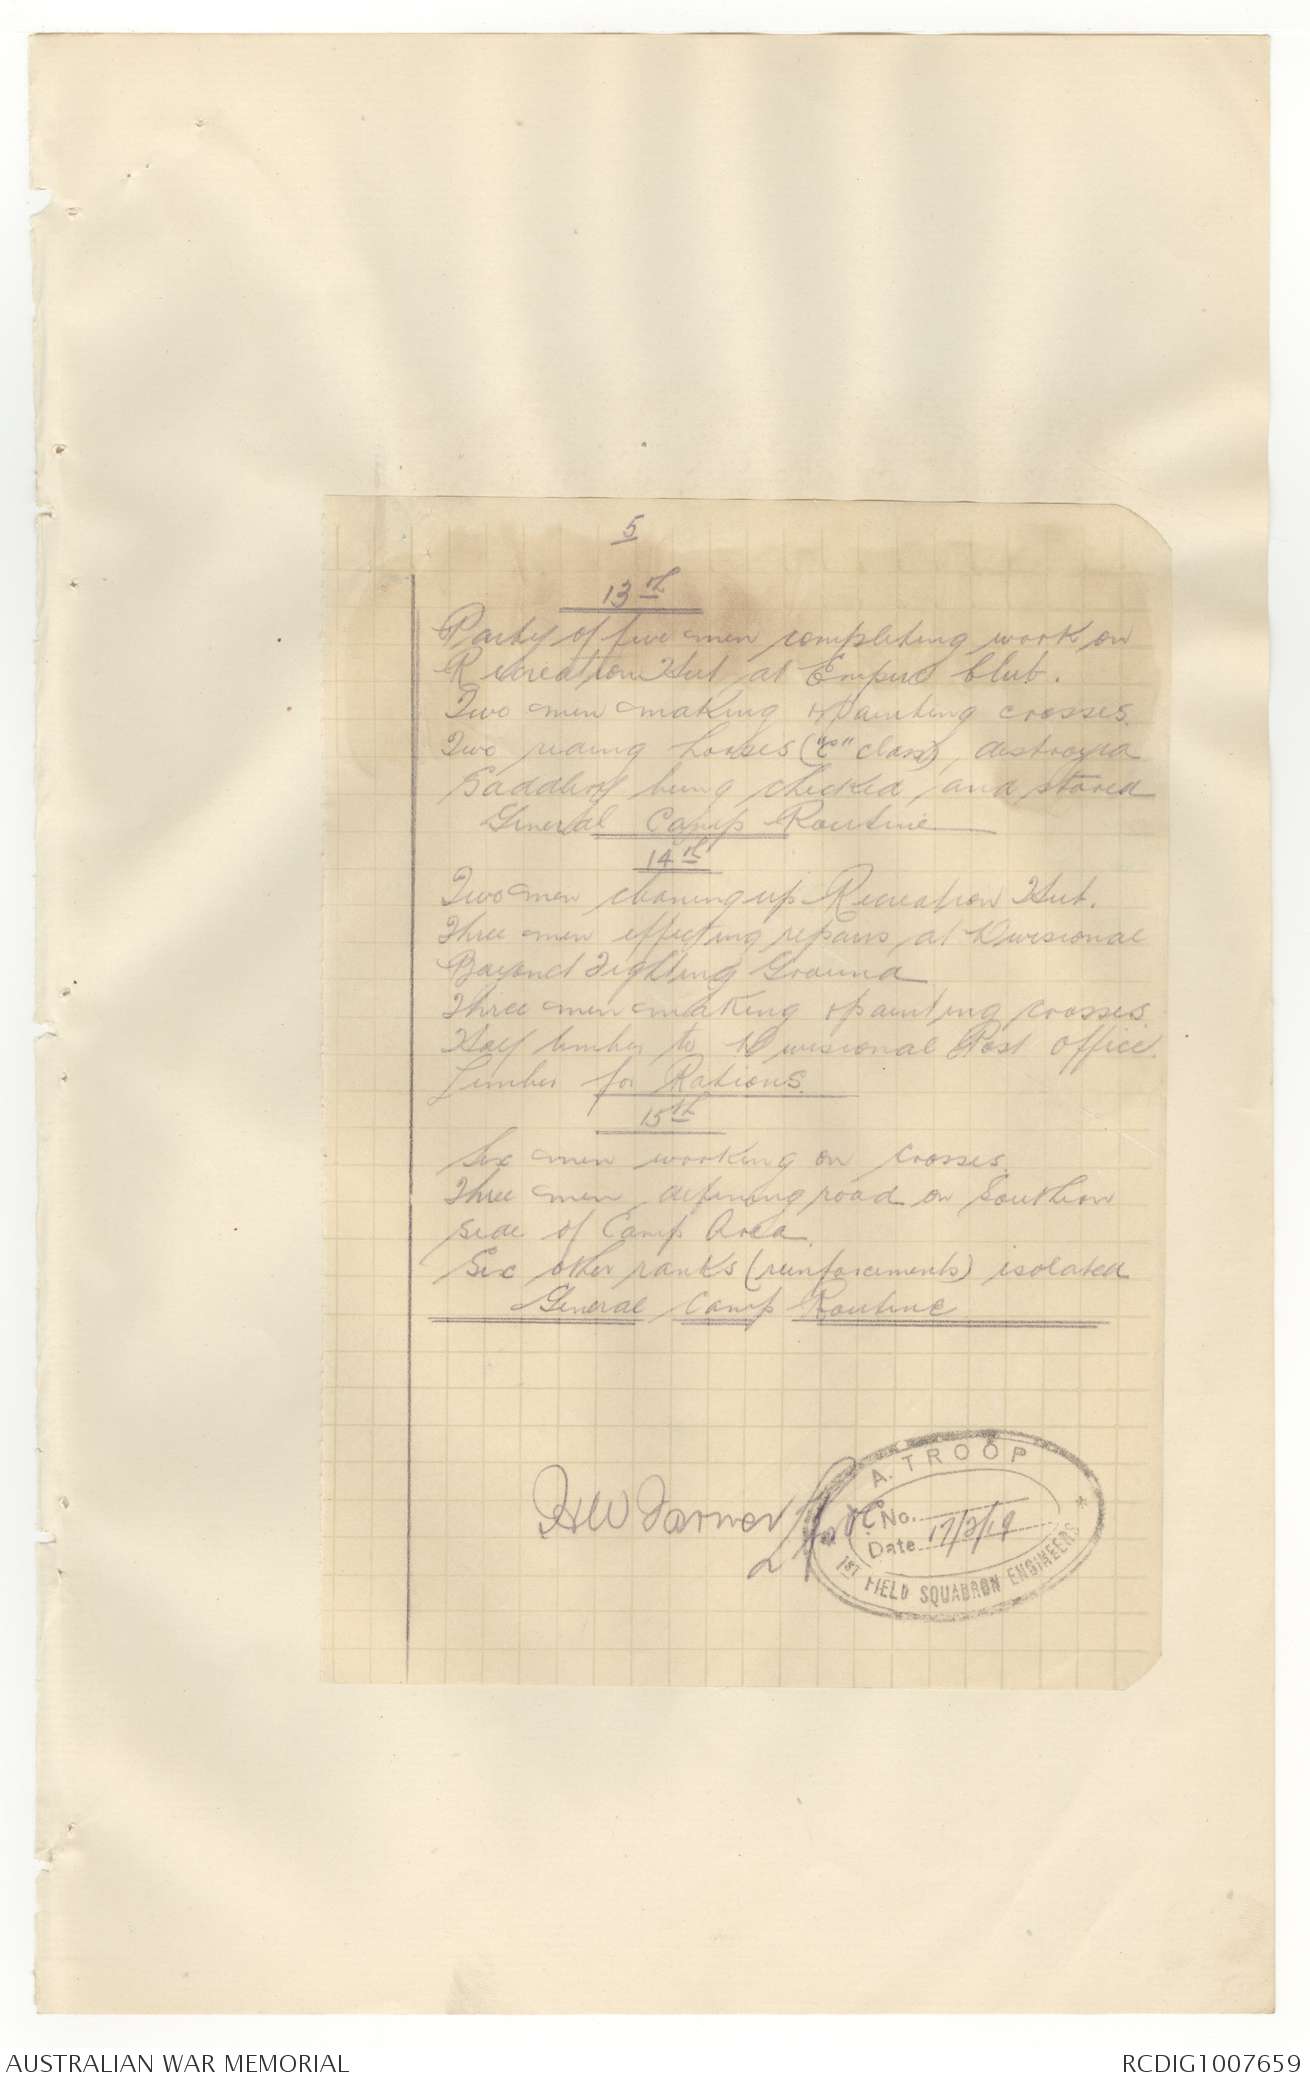 5
13th
Party of five men completing work on
Recreation Hut at Empire Club.
Two men making & painting crosses.
Two riding horses ("C" class), destroyed
Saddlery being checked, and stored
General Camp Routine
14th
Two men cleaning up Recreation Hut.
Three men effecting repairs at Divisional
Bayonet Fighting Ground
Three men making & painting crosses.
Half limber to Divisional Post Office.
Limber for Rations.
15th
Six men working on crosses.
Three men defining road on Southern
side of Camp Area.
Six other ranks (reinforcements) isolated
General Camp Routine
HW Farmer
A. TROOP
No.
Date 17/2/19
1ST FIELD SQUADRON ENGINEERS *
AUSTRALIAN WAR MEMORIAL
RCDIG1007659